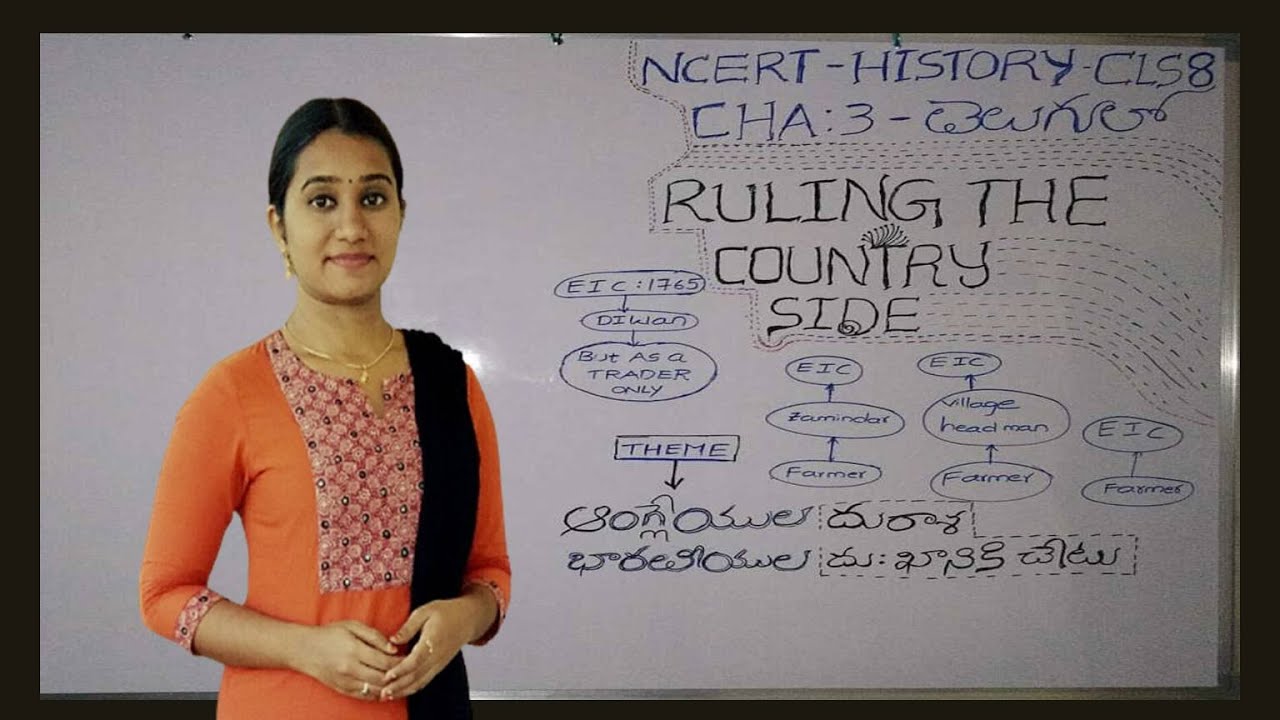 NCERT-HISTORY-CLS8
CHA:3 - తెలుగులో
RULING THE
COUNTRY
SIDE
EIC:1765
DIWAN
But As a
TRADER
ONLY
EIC
Zamindar
Farmer
EIC
village
head man
Farmer
EIC
Farmer
THEME
ఆంగ్లేయుల దురాశ
భారతీయుల దుఃఖానికి చేటు